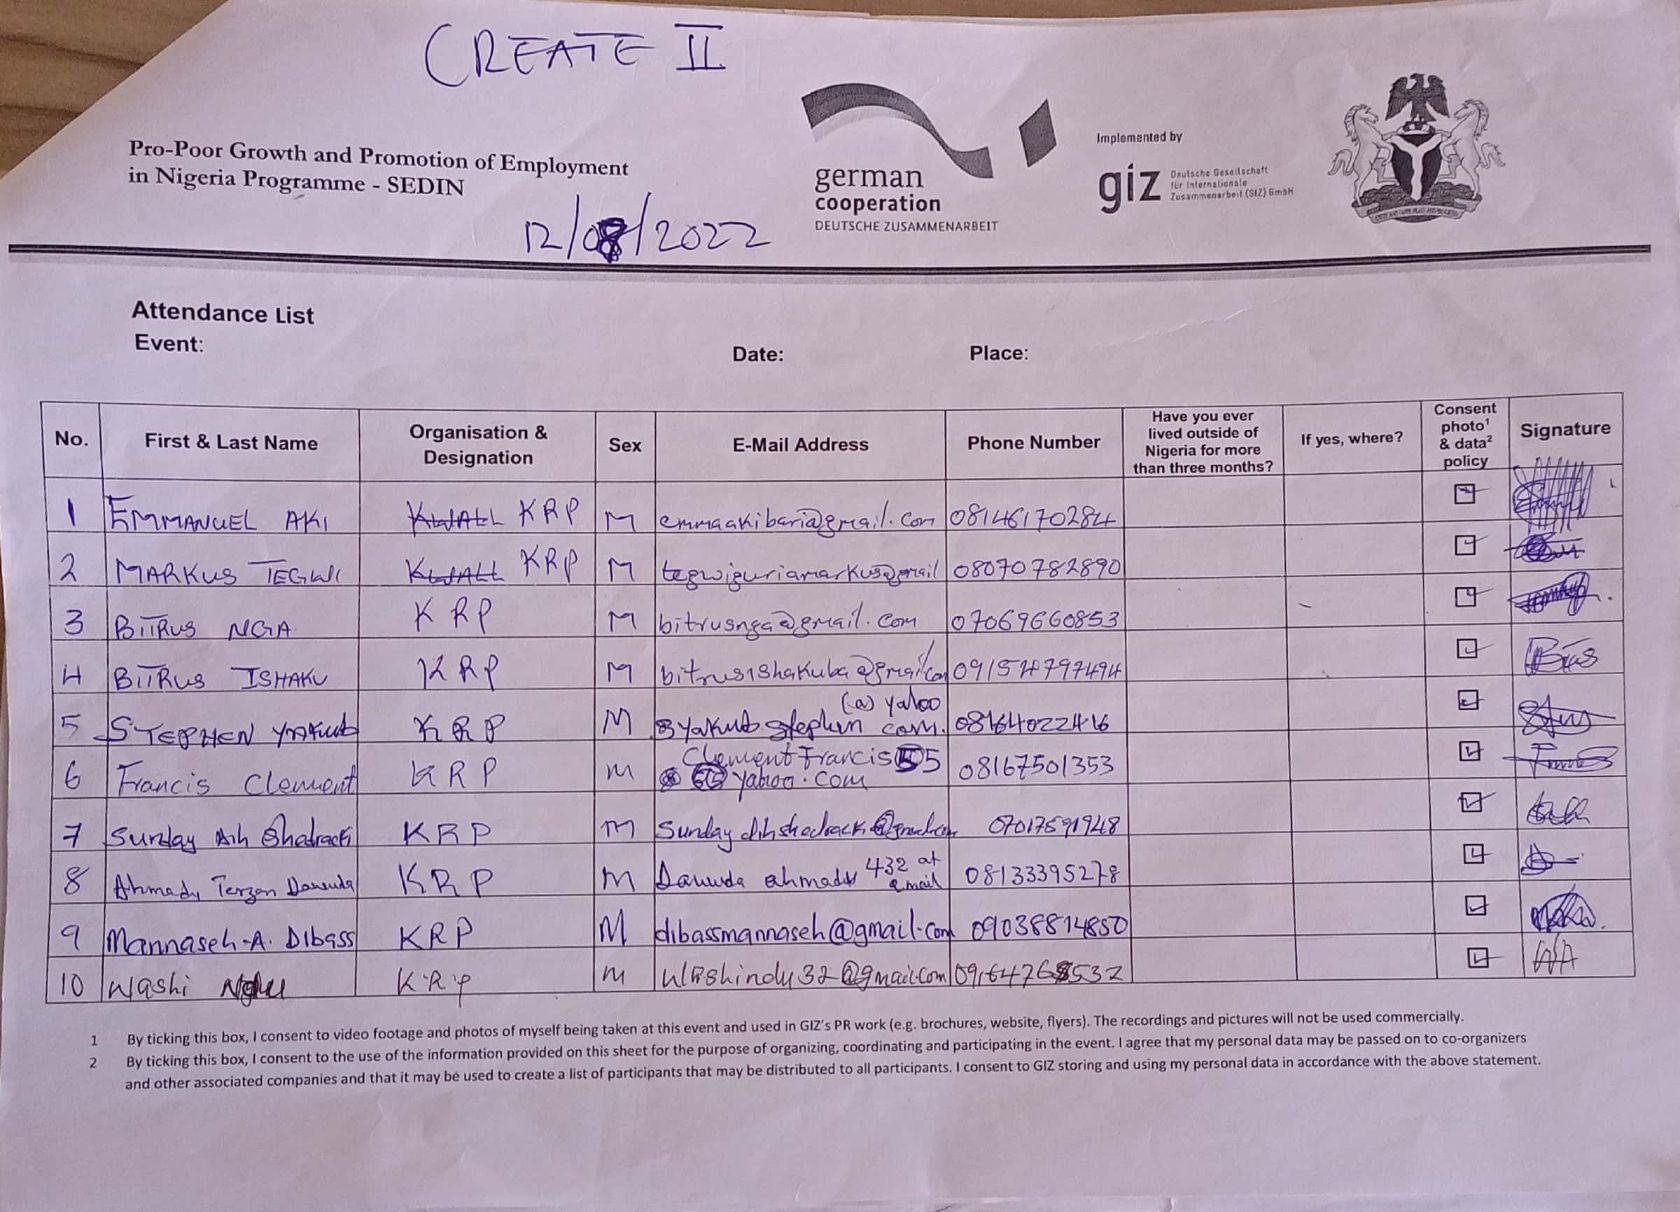 CREATE II
Pro-Poor Growth and Promotion of Employment
in Nigeria Programme - SEDIN
12/08/2022
german
cooperation
DEUTSCHE ZUSAMMENARBEIT
Implemented by
giz Deutsche Gesellschaft
für Internationale
Zusammenarbeit (GIZ) GmbH
Attendance List
Event:
Date: Place:
No. First & Last Name Organisation & Designation Sex E-Mail Address Phone Number Have you ever lived outside of Nigeria for more than three months? If yes, where? Consent photo¹ & data² policy Signature
1 EMMANUEL AKI KWALL KRP M emmaakibari@gmail.com 08146170284
2 MARKUS TEGWI KWALL KRP M tegwiguriamarkus@gmail 08070782890
3 BITRUS NGA KRP M bitrusnga@gmail.com 07069660853
4 BITRUS ISHAKU KRP M bitrusishakuba@gmail.com 09154797494
5 STEPHEN YAKUB KRP M yakubstephen (a) yahoo com. 08164022416
6 Francis Clement KRP M Clement Francis 55 yahoo.com 08167501353
7 Sunday Dih Shadrack KRP M Sundaydihshadrack@gmail.com 07017591948
8 Ahmadu Terzen Dauuda KRP M Dauuda ahmadu 432 at gmail 08133395278
9 Mannaseh-A. DIBASS KRP M dibassmannaseh@gmail.com 09038814850
10 Washi KRP M 32@gmail.com 09164768532
1 By ticking this box, I consent to video footage and photos of myself being taken at this event and used in GIZ's PR work (e.g. brochures, website, flyers). The recordings and pictures will not be used commercially.
2 By ticking this box, I consent to the use of the information provided on this sheet for the purpose of organizing, coordinating and participating in the event. I agree that my personal data may be passed on to co-organizers
and other associated companies and that it may be used to create a list of participants that may be distributed to all participants. I consent to GIZ storing and using my personal data in accordance with the above statement.